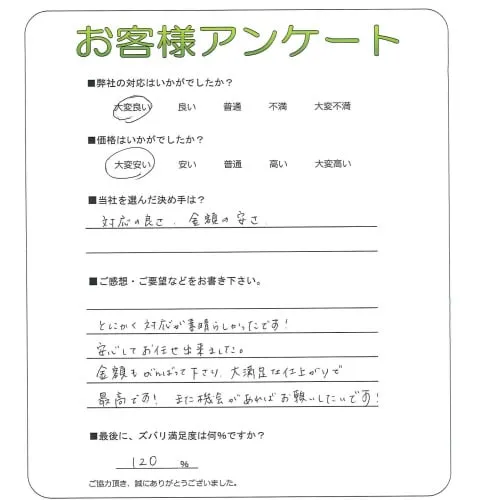 お客様アンケート
■弊社の対応はいかがでしたか？
大変良い 良い 普通 不満 大変不満
■価格はいかがでしたか？
大変安い 安い 普通 高い 大変高い
■当社を選んだ決め手は？
対応の良さ、金額の安さ
■ご感想・ご要望などをお書き下さい。
とにかく対応が素晴らしかったです！
安心してお任せ出来ました。
金額もがんばって下さり、大満足な仕上がりで
最高です！また機会があればお願いしたいです！
■最後に、ズバリ満足度は何％ですか？
120 %
ご協力頂き、誠にありがとうございました。